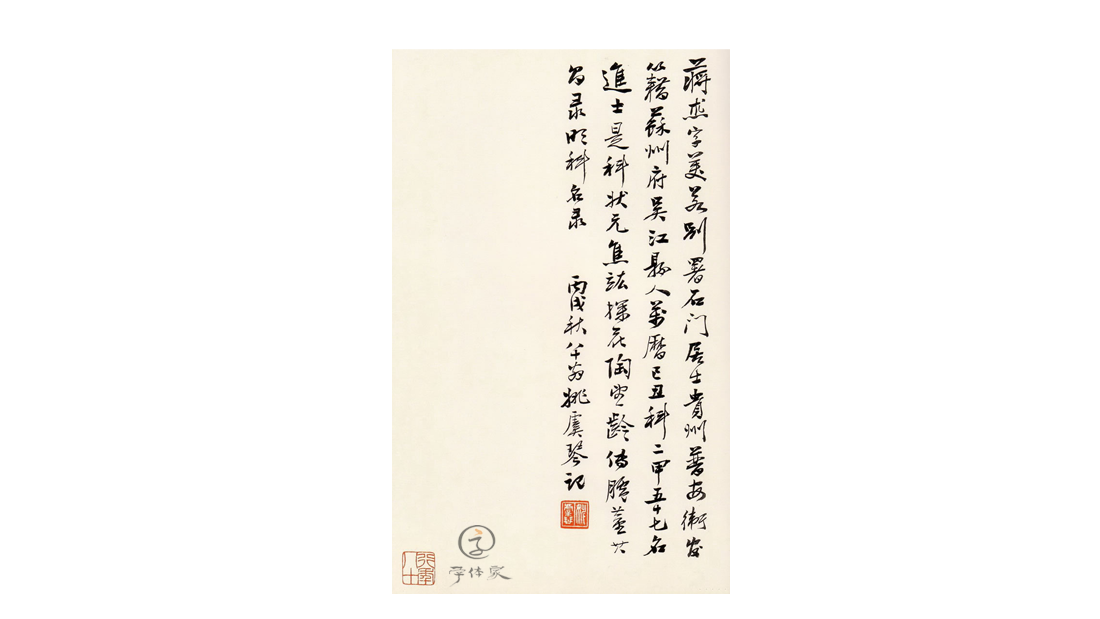 蔣杰字美若別署石门居士貴州普安衛
籍蘇州府吳江縣人萬曆己丑科二甲五十七名
進士是科狀元焦竑探花陶望齡傳臚董其
昌录明科名录 丙戌秋八十翁姚虞琴記
行年八十
字体家